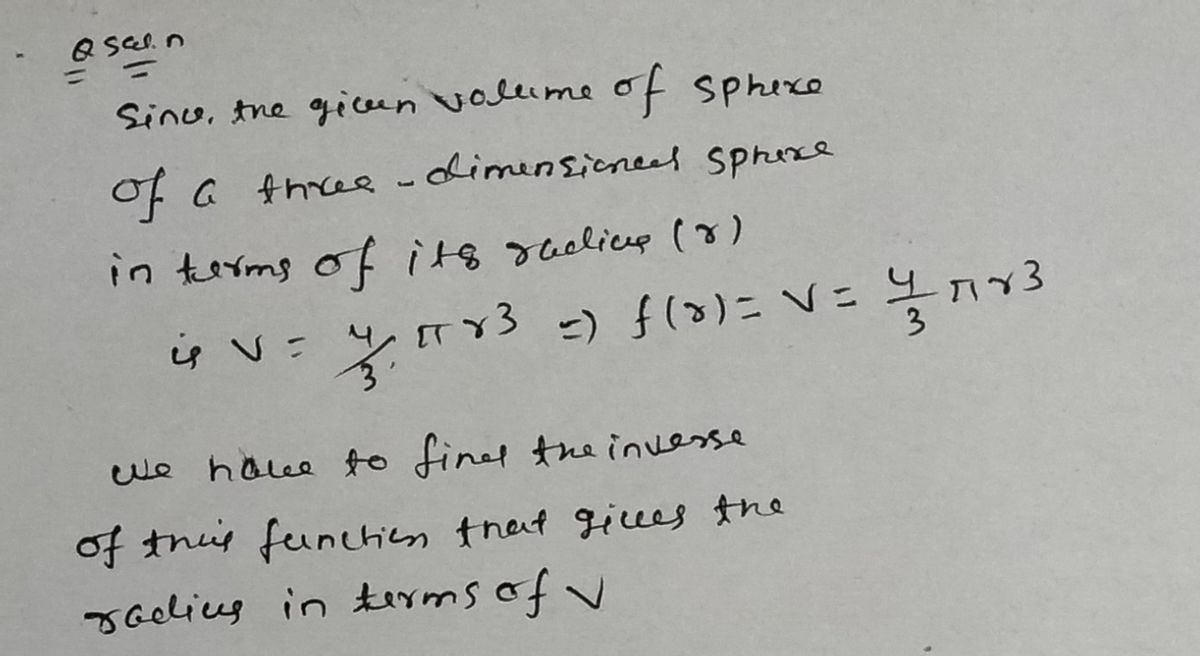 Since, the given volume of sphere
of a three-dimensional sphere
in terms of its radius (r)
is V = 4/3 π r3 => f(r) = V = 4/3 π r3
we have to find the inverse
of this function that gives the
radius in terms of V